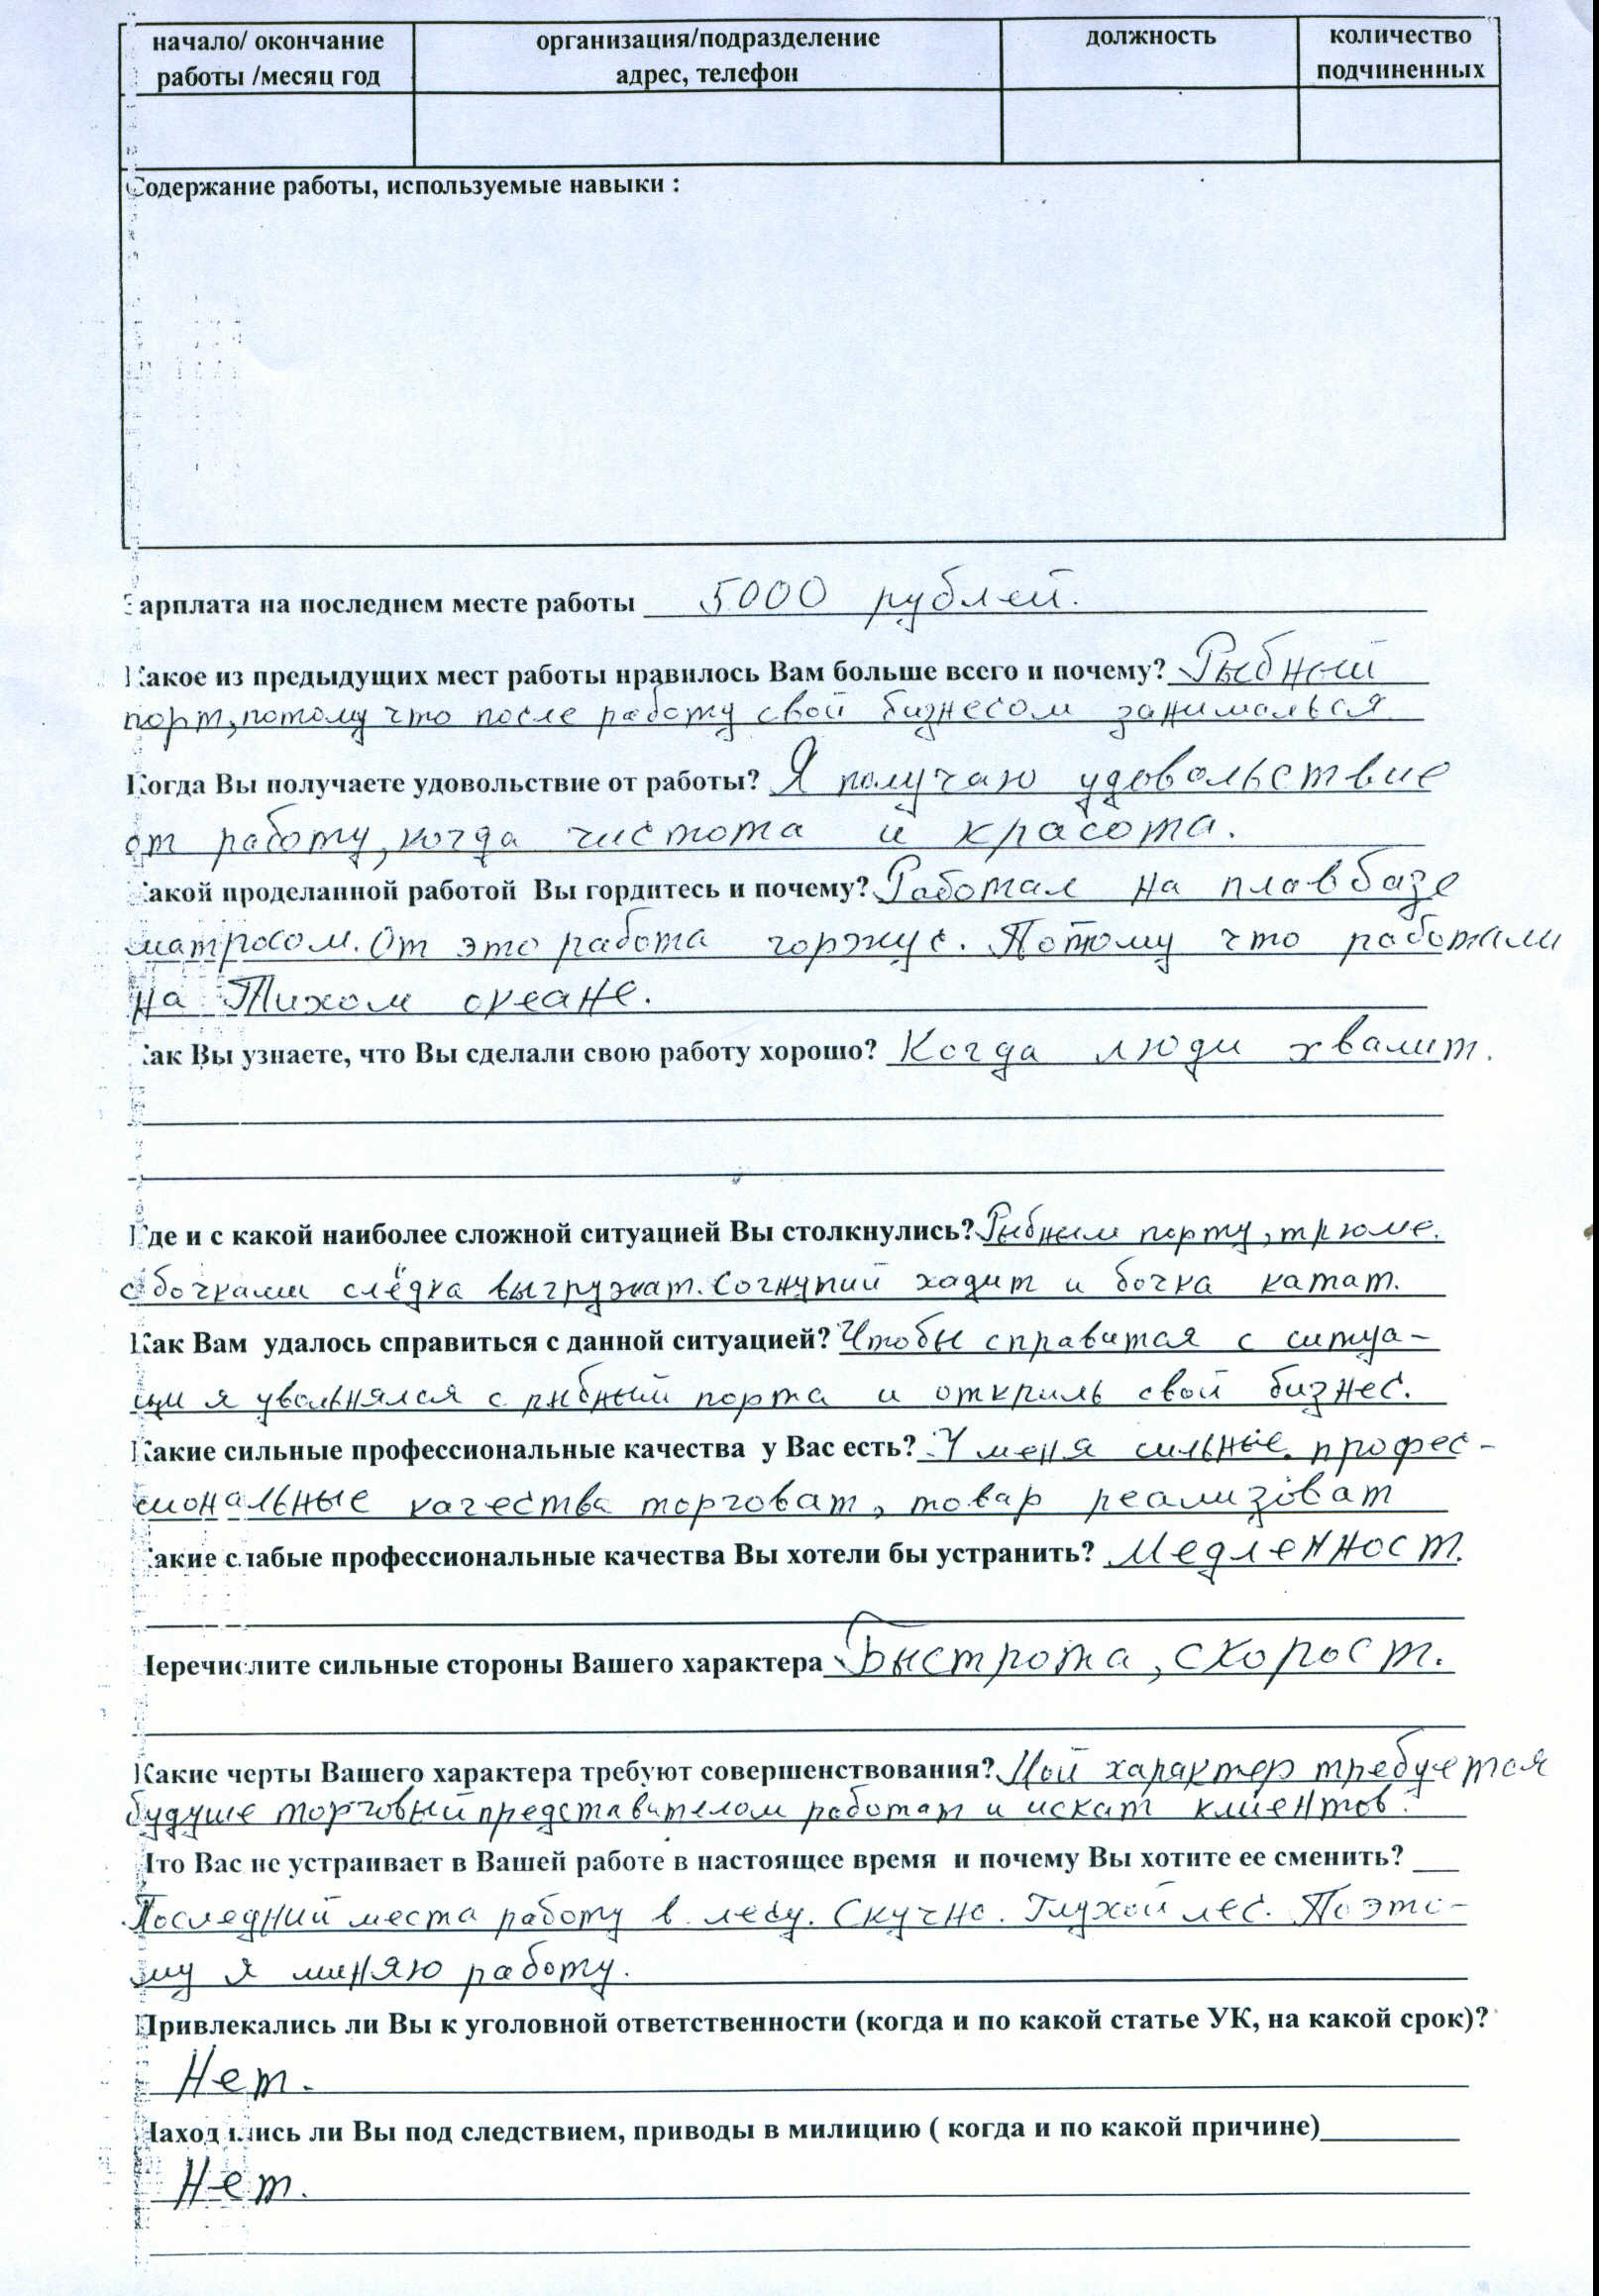 начало/ окончание работы /месяц год | организация/подразделение адрес, телефон | должность | количество подчиненных
Содержание работы, используемые навыки :
Зарплата на последнем месте работы 5000 рублей.
Какое из предыдущих мест работы нравилось Вам больше всего и почему? Рыбный
порт, потому что после работу свой бизнесом занималься.
Когда Вы получаете удовольствие от работы? Я получаю удовольствие
от работу, когда чистота и красота.
Какой проделанной работой Вы гордитесь и почему? Работал на плавбазе
матросом. От это работа горжус. Потому что работали
на Тихом океане.
Как Вы узнаете, что Вы сделали свою работу хорошо? Когда люди хвалит.
Где и с какой наиболее сложной ситуацией Вы столкнулись? Рыбным порту, трюме.
с бочками слёдка выгружат. Согнутий хадит и бочка катат.
Как Вам удалось справиться с данной ситуацией? Чтобы справится с ситуа-
ци я увольнялся с рибный порта и открить свой бизнес.
Какие сильные профессиональные качества у Вас есть? У меня сильные профес-
сиональные качества торговат, товар реализоват
Какие слабые профессиональные качества Вы хотели бы устранить? Медленност.
Перечислите сильные стороны Вашего характера Быстрота, скорост.
Какие черты Вашего характера требуют совершенствования? Мой характер требуется
будуше торговый представителом работат и искат клиентов.
Что Вас не устраивает в Вашей работе в настоящее время и почему Вы хотите ее сменить?
Последний места работу в лесу. Скучно. Глухой лес. Поэто-
му я миняю работу.
Привлекались ли Вы к уголовной ответственности (когда и по какой статье УК, на какой срок)?
Нет.
Находились ли Вы под следствием, приводы в милицию ( когда и по какой причине)
Нет.